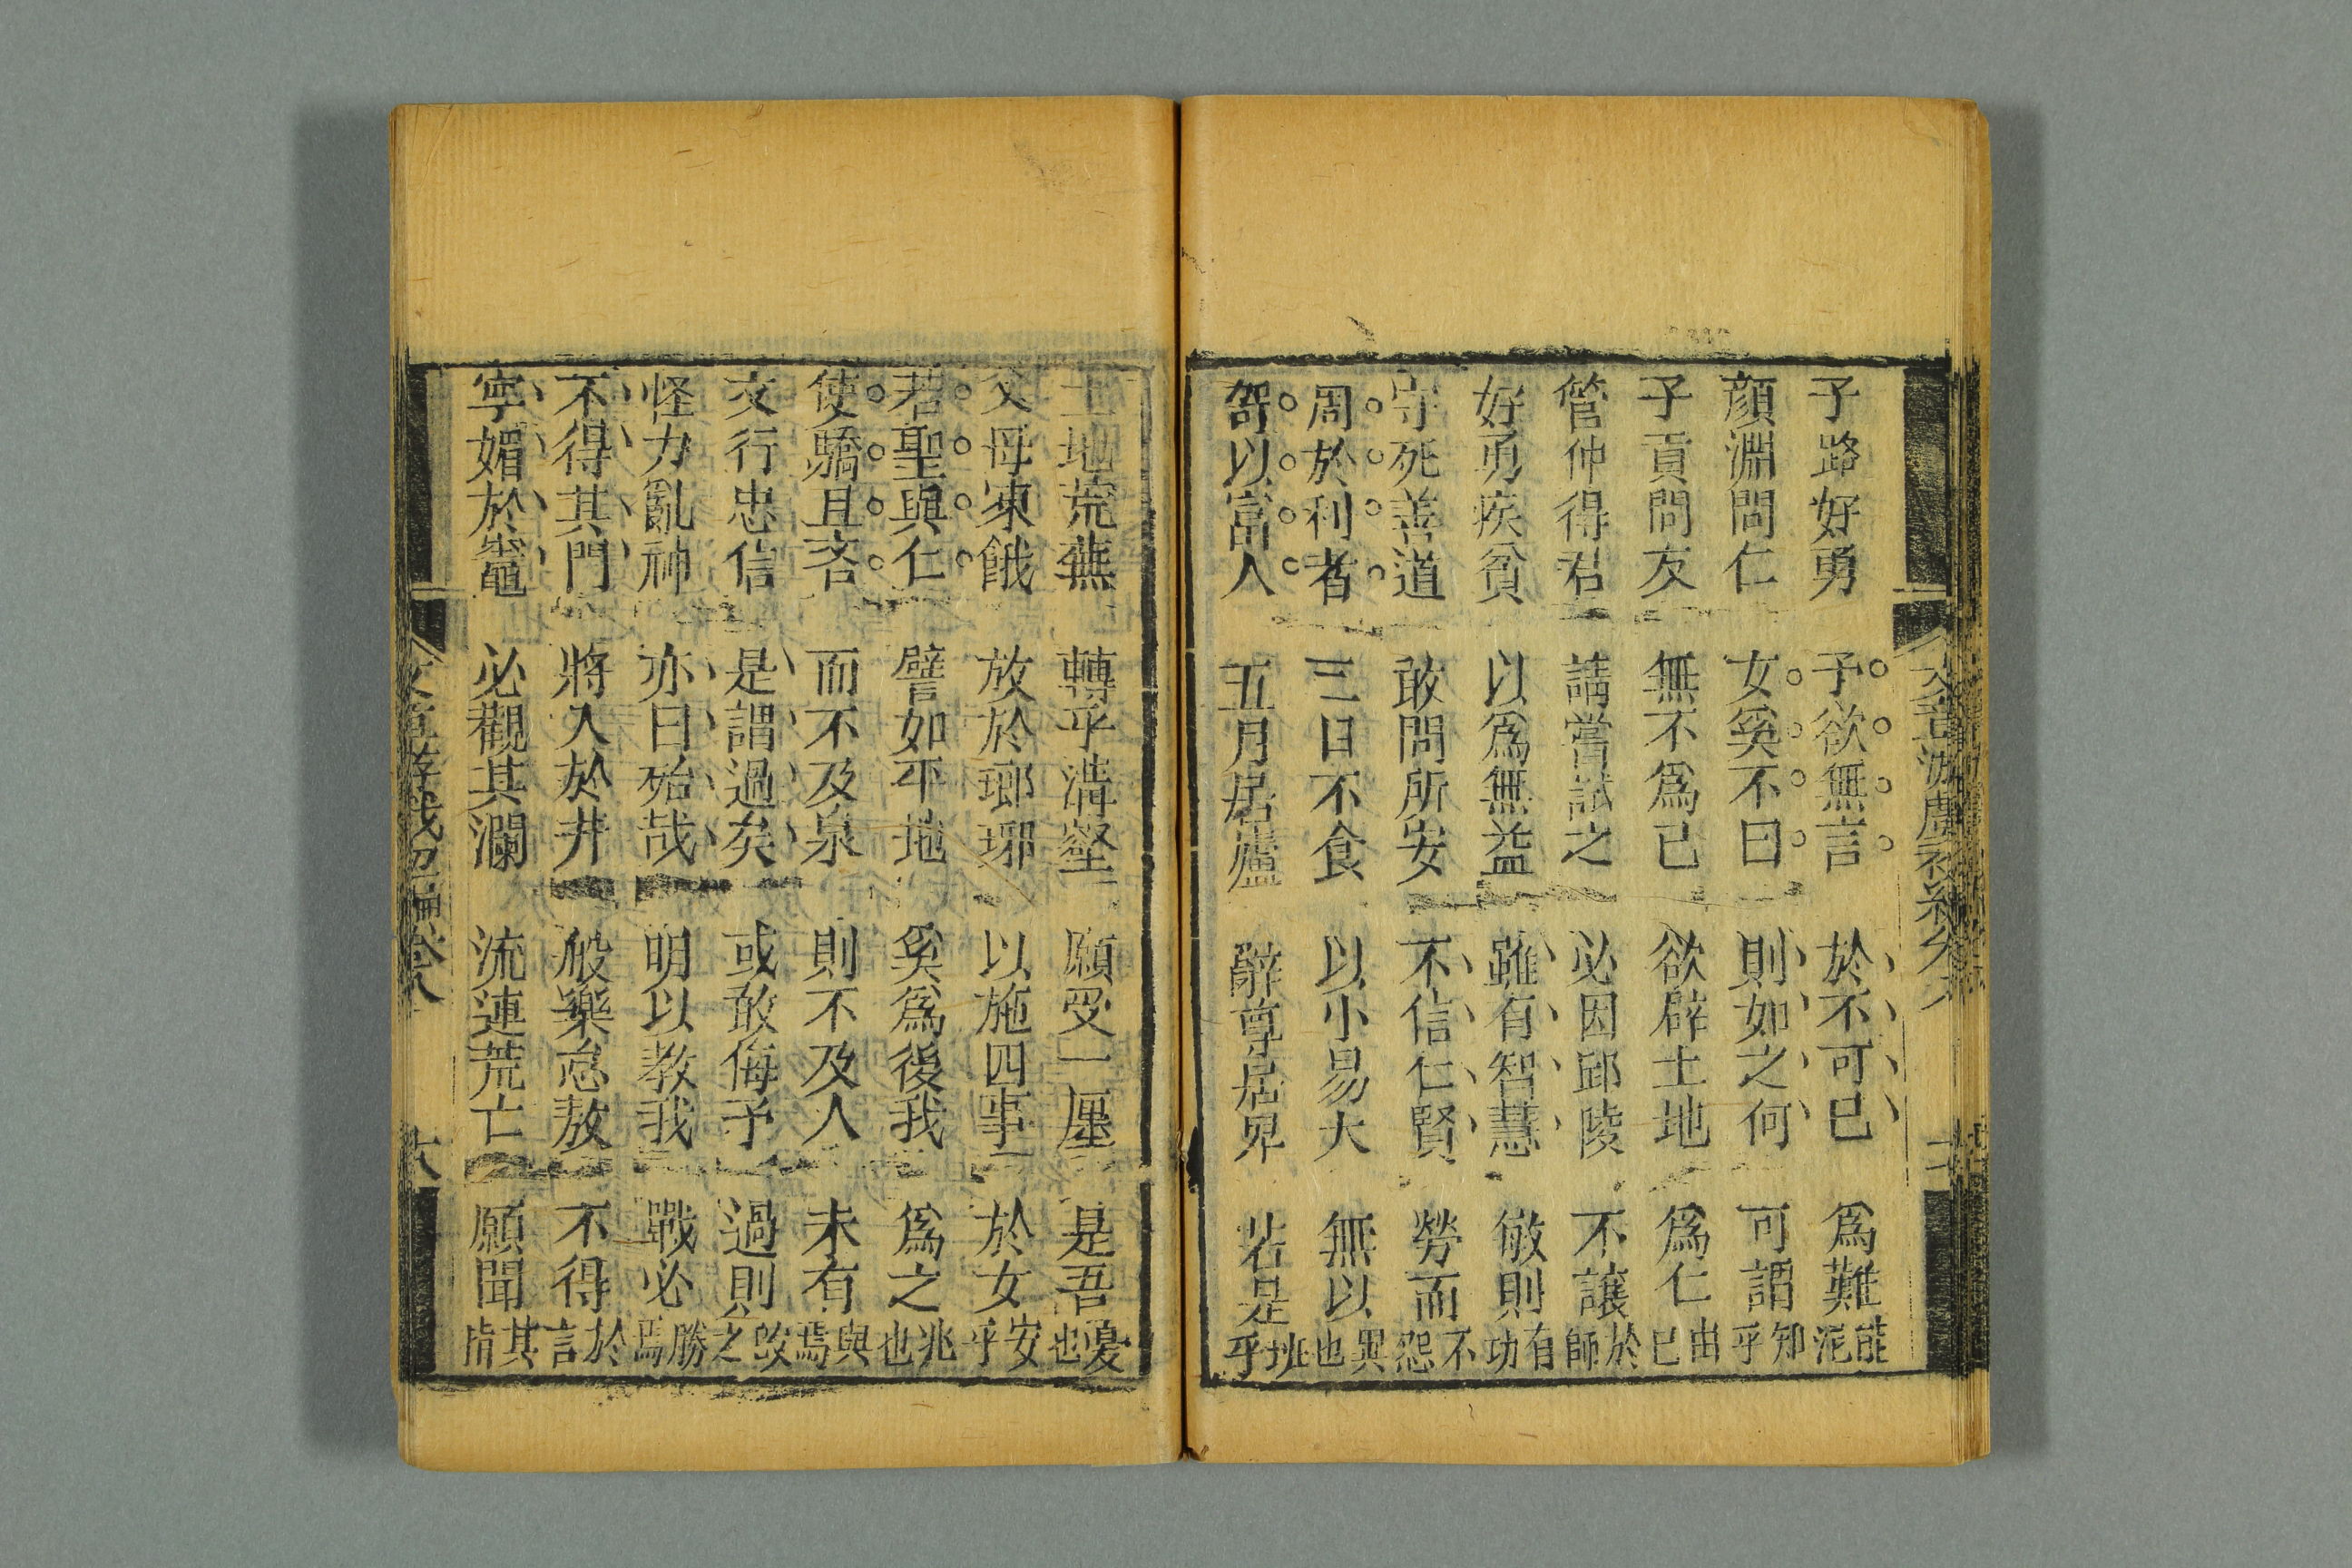 子路好勇 予欲無言 於不可已 爲難能泥
顔淵問仁 女奚不曰 則如之何 可謂知乎
子貢問友 無不爲已 欲辟土地 爲仁由已
管仲得君 請嘗試之 必因邱陵 不讓於師
好勇疾貧 以爲無益 雖有智慧 敏則有功
守死善道 敢問所安 不信仁賢 勞而不怨
周於利者 三日不食 以小易大 無以異也
咎以富人 五月居廬 辭尊居卑 若是班乎
土地荒蕪 轉乎溝壑 願受一廛 是吾憂也
父母凍餓 放於瑯琊 以施四事 於女安乎
若聖與仁 譬如平地 奚爲後我 爲之兆也
使驕且吝 而不及泉 則不及人 未有與焉
文行忠信 是謂過矣 或敢侮予 過則改之
怪力亂神 亦曰殆哉 明以教我 戰必勝焉
不得其門 將入於井 般樂怠敖 不得於言
寧媚於竈 必觀其瀾 流連荒亡 願聞其指
文章游戲初編 卷八